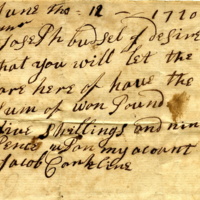 June tho - 12 - 1720
Joseph budsel I desire
that you will let the
are here of have the
Sum of won Pound
five Shillings and nin
Pence upon my acount
Jacob Conklene